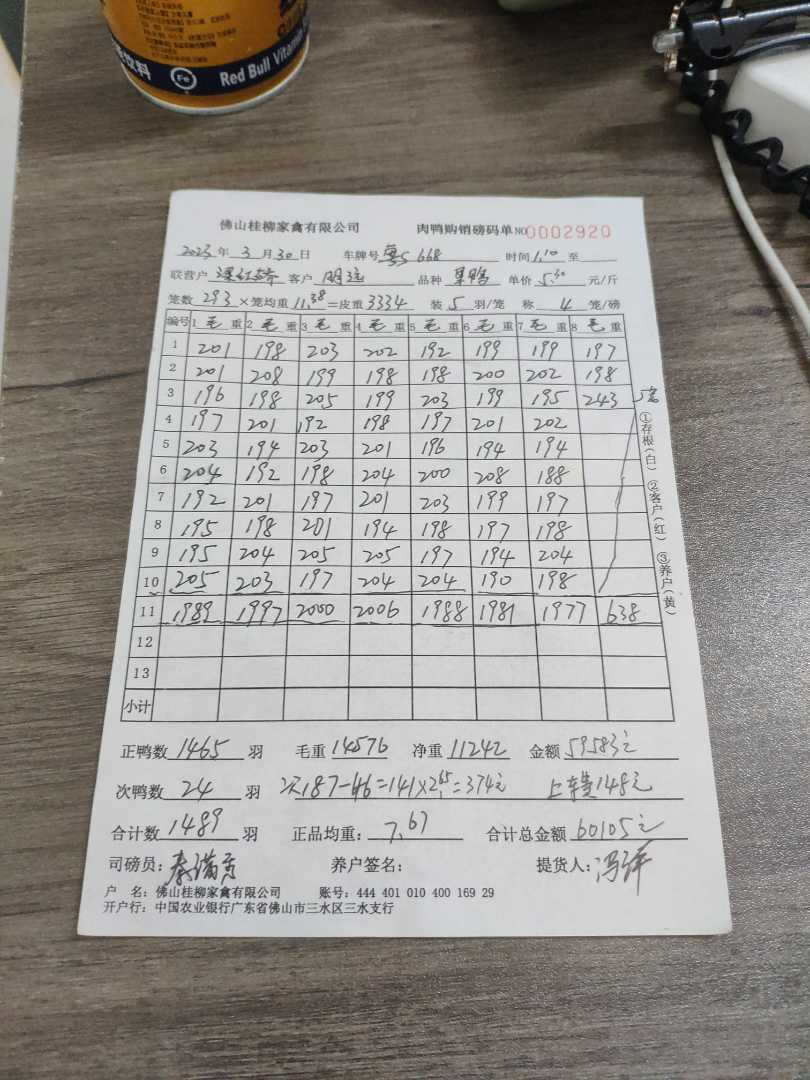 Red Bull Vitamin
饮料
Fe
佛山桂柳家禽有限公司 肉鸭购销磅码单 NO 0002920
2023 年 3 月 30 日 车牌号 粤S 668 时间 1.10 至
联营户 客户 明远 品种 单价 5.30 元/斤
笼数 293 ×笼均重 11.38 =皮重 3334 装 5 羽/笼 称 4 笼/磅
编号 1 毛 重 2 毛 重 3 毛 重 4 毛 重 5 毛 重 6 毛 重 7 毛 重 8 毛 重
1 201 198 203 202 192 199 199 197
2 201 208 199 198 198 200 202 198
3 196 198 205 199 203 199 195 243 5笼
4 197 201 192 198 197 201 202
5 203 194 203 201 196 194 194
6 204 192 198 204 200 208 188
7 192 201 197 201 203 199 197
8 195 198 201 194 198 197 198
9 195 204 205 205 197 194 204
10 205 203 197 204 204 190 198
11 1989 1997 2000 2006 1988 1981 1977 638
12
13
小计
①存根(白) ②客户(红) ③养户(黄)
正鸭数 1465 羽 毛重 14576 净重 11242 金额 59583元
次鸭数 24 羽 次187-46=141×2.65=374元 上车费148元
合计数 1489 羽 正品均重: 7.67 合计总金额 60105元
司磅员: 秦满秀 养户签名: 提货人: 冯祥
户 名: 佛山桂柳家禽有限公司 账号: 444 401 010 400 169 29
开户行: 中国农业银行广东省佛山市三水区三水支行